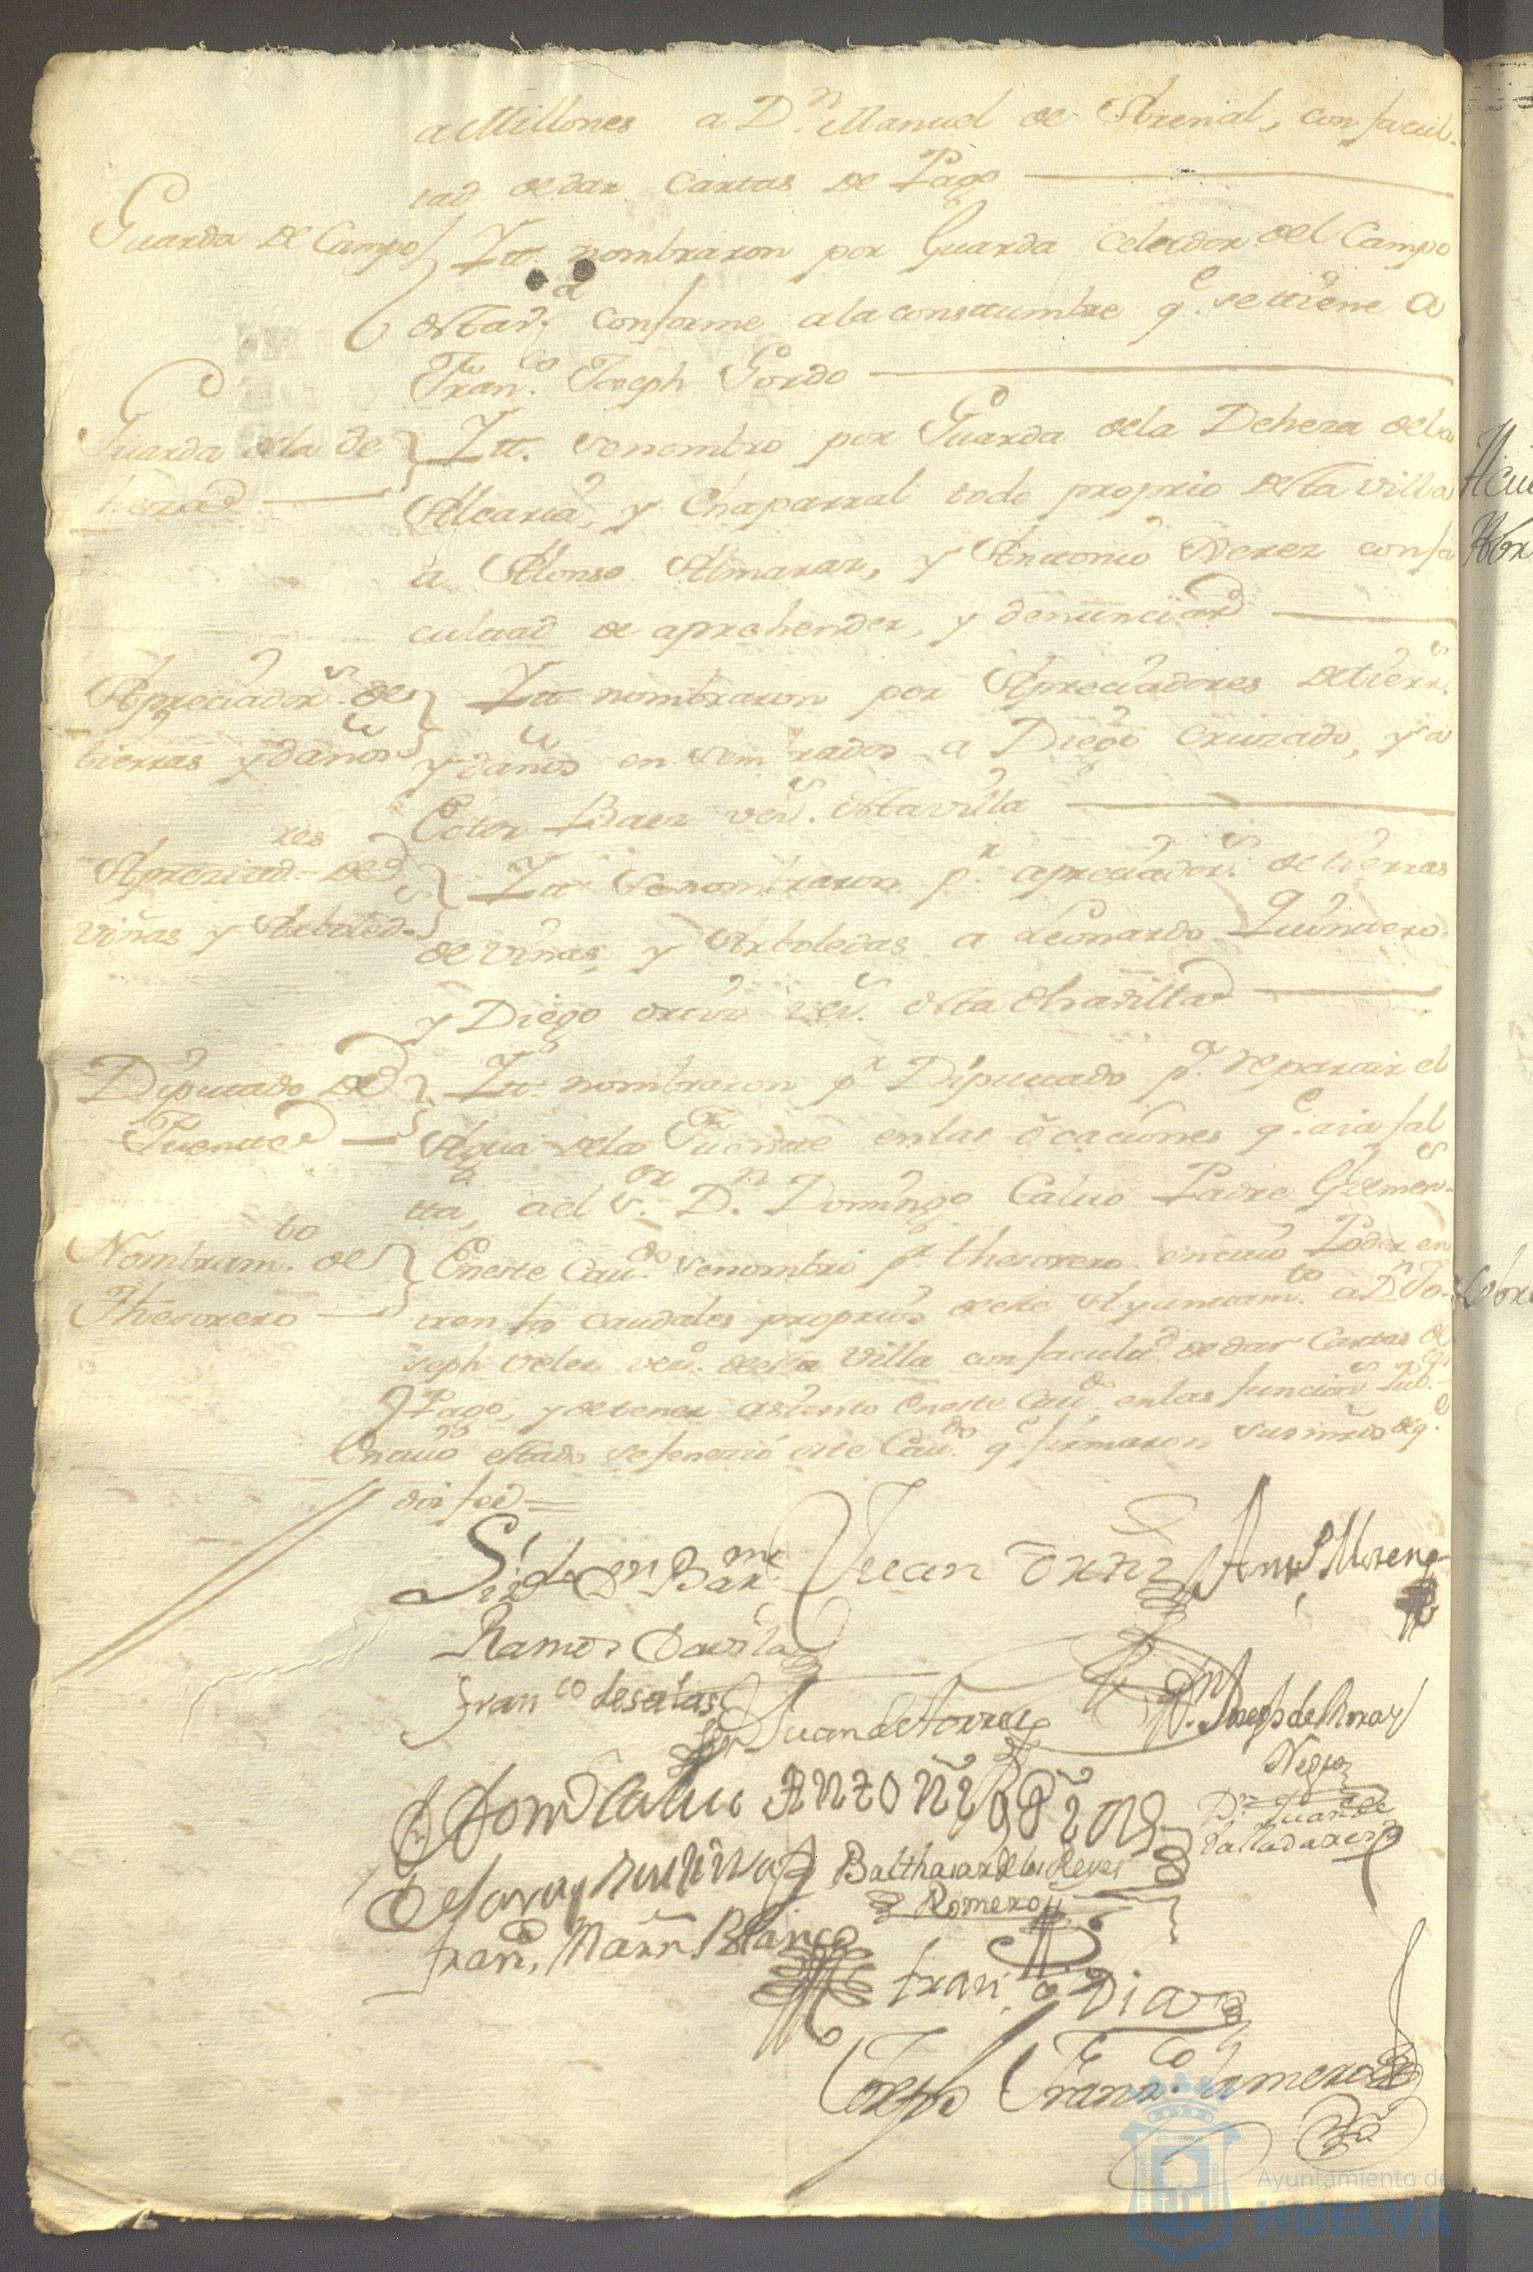 a Millones a D.n Manuel de Arenal, con facul-
tad de dar Cartas de Pago
Guarda de Campo
Itt. nombraron por Guarda Celador del Campo
desta v.a conforme a la constumbre q.e se tiene a
Fran.co Joseph Gordo
Guarda dela de
heza
Itt. se nombro por Guarda dela Deheza dela
Alcaria, y Chaparral todo proprio desta villa
a Alonso Almaraz, y Antonio Perez con fa
cultad de aprehender, y denunciar
Apreciador.s de
tierras y daños
Itt nombraron por Apreciadores de tierr.s
y daños en sembrados a Diego Cruzado, y a
Ector Baez vez.s desta villa
Apreziad.res de
viñas y Arboled.s
Itt se nombraron p.r apreciador.s de tierras
de viñas, y Arboledas a Leonardo Quintero
y Diego vez.s desta dha villa
Diputado de
Fuente
Itt. nombraron p.r Diputado p.a repartir el
Agua dela Fuente en las ocaciones q.e aia fal
tta, a el S.or D.n Domingo Calvo Padre G.l de men.s
Nombram.to de
Thesorero
En este Cav.do se nombró p.r thesorero en cuio Poder en
tren los caudales proprios de este Ayuntam.to a D.n Jo-
seph Velez vez.o desta Villa con facultad de dar Cartas de
Pago, y de tener asiento en este Cav.do en las funcion.s Pub.cas
En cuio estado se fenezió este Cav.do q.e firmaron sus mrds de q.e
doi fee =
Liz.do D.n Bar.me
Ramos Davila
Juan Ortiz
Ant.o Moreno
Fran.co de salas
Juan de Torres
D.n Joseph de Rozas
Negro
Dom.o Calvo
Antoni
D.n Juan de
Valladares
Balthasar de los Reyes
Romero
Fran.co Marn Blanco
Fran.co Diaz
Joseph Fran.co Romero
Ayuntamiento de
HUELVA